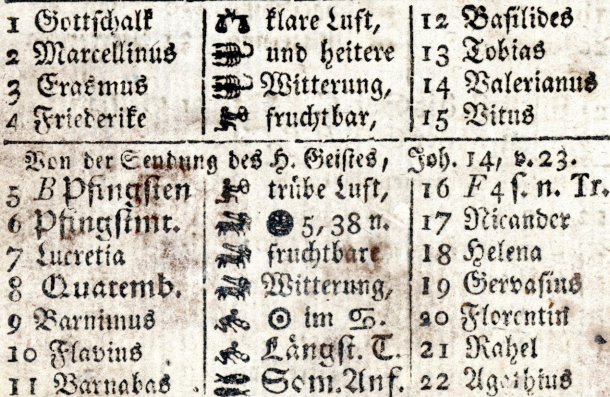 1 Gottschalk klare Luft, 12 Basilides
2 Marcellinus und heitere 13 Tobias
3 Erasmus Witterung, 14 Valerianus
4 Friederike fruchtbar, 15 Vitus
Von der Sendung des H. Geistes, Joh. 14, v. 23.
5 B Pfingsten trübe Luft, 16 F 4 s. n. Tr.
6 Pfingstmt. 5, 38 n. 17 Nicander
7 Lucretia fruchtbare 18 Helena
8 Quatemb. Witterung, 19 Gervasius
9 Barnimus ☉ im ♋. 20 Florentin
10 Flavius Längst. T. 21 Rahel
11 Barnabas Som. Anf. 22 Agathius